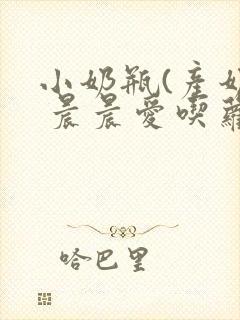 小奶瓶(產奶
晨晨愛喫蘿
哈巴里